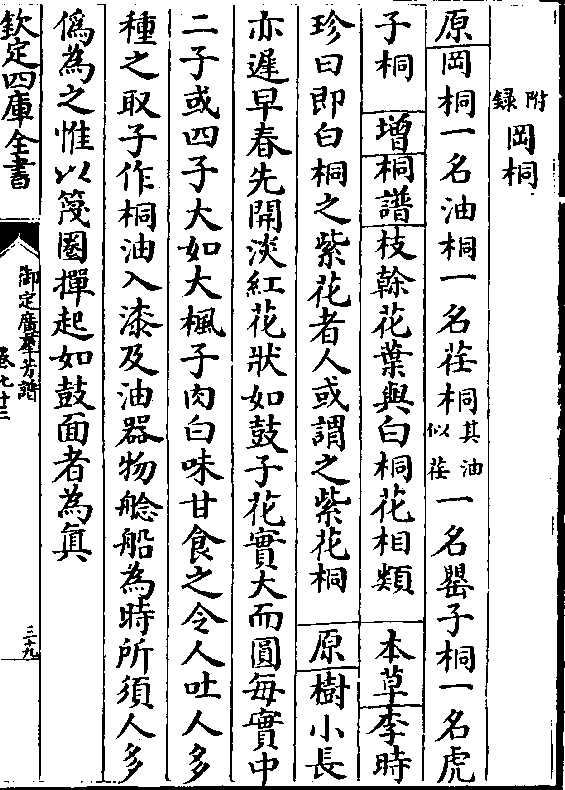 附錄岡桐
原岡桐一名油桐一名荏桐其油似荏一名罌子桐一名虎
子桐　增桐譜枝榦花葉與白桐花相類　本草李時
珍曰即白桐之紫花者人或謂之紫花桐　原樹小長
亦遲早春先開淡紅花狀如鼓子花實大而圓每實中
二子或四子大如大楓子肉白味甘食之令人吐人多
種之取子作桐油入漆及油器物艌船為時所須人多
偽為之惟以篾圈撣起如鼓面者為真
欽定四庫全書
御定廣羣芳譜
卷七十三
三十九